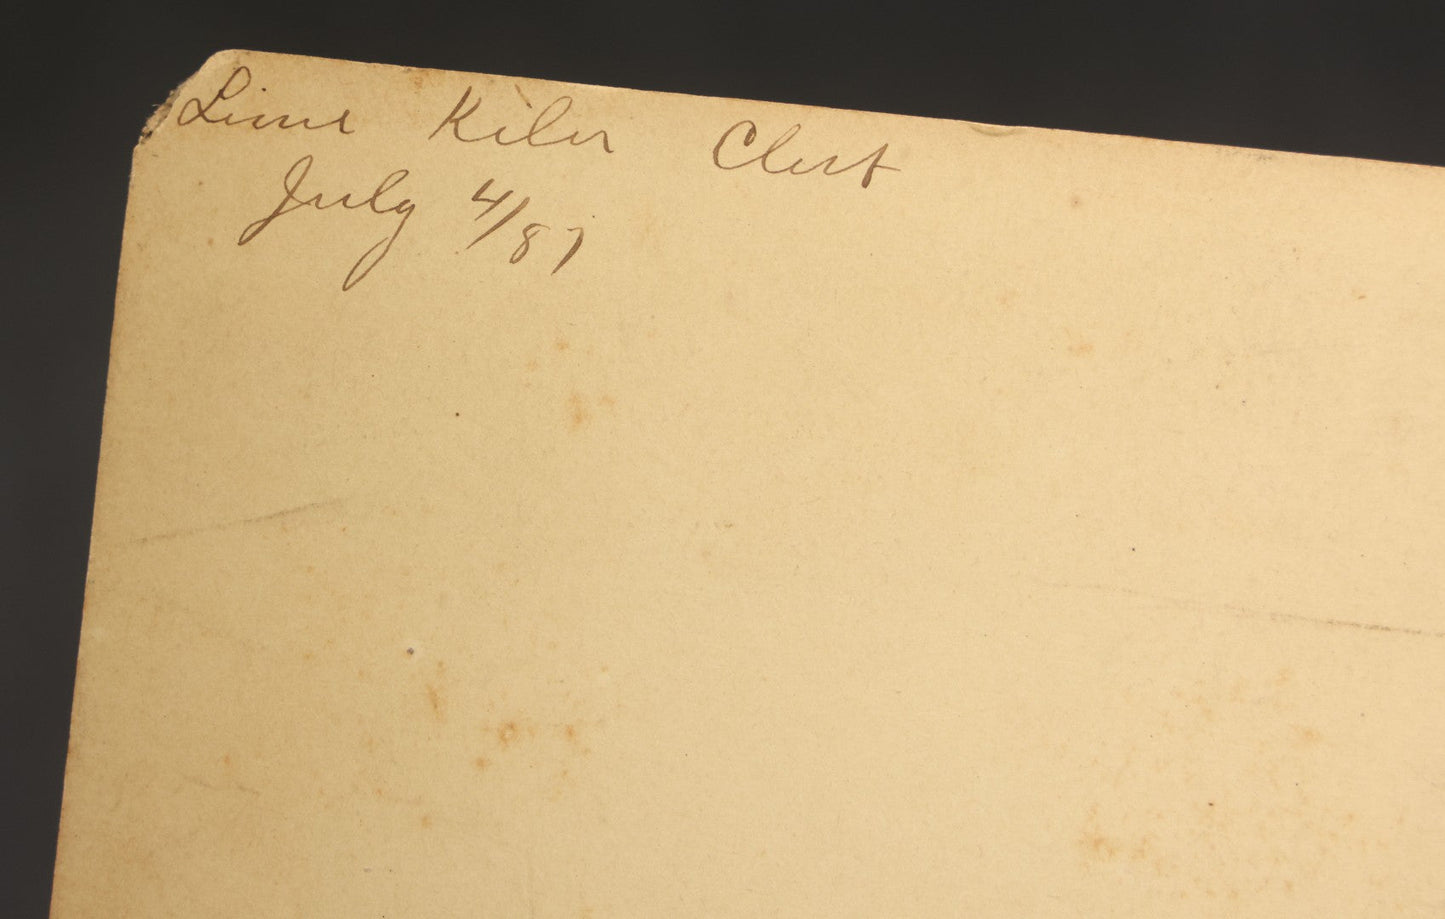 Lime Kiln Club
July 4/87